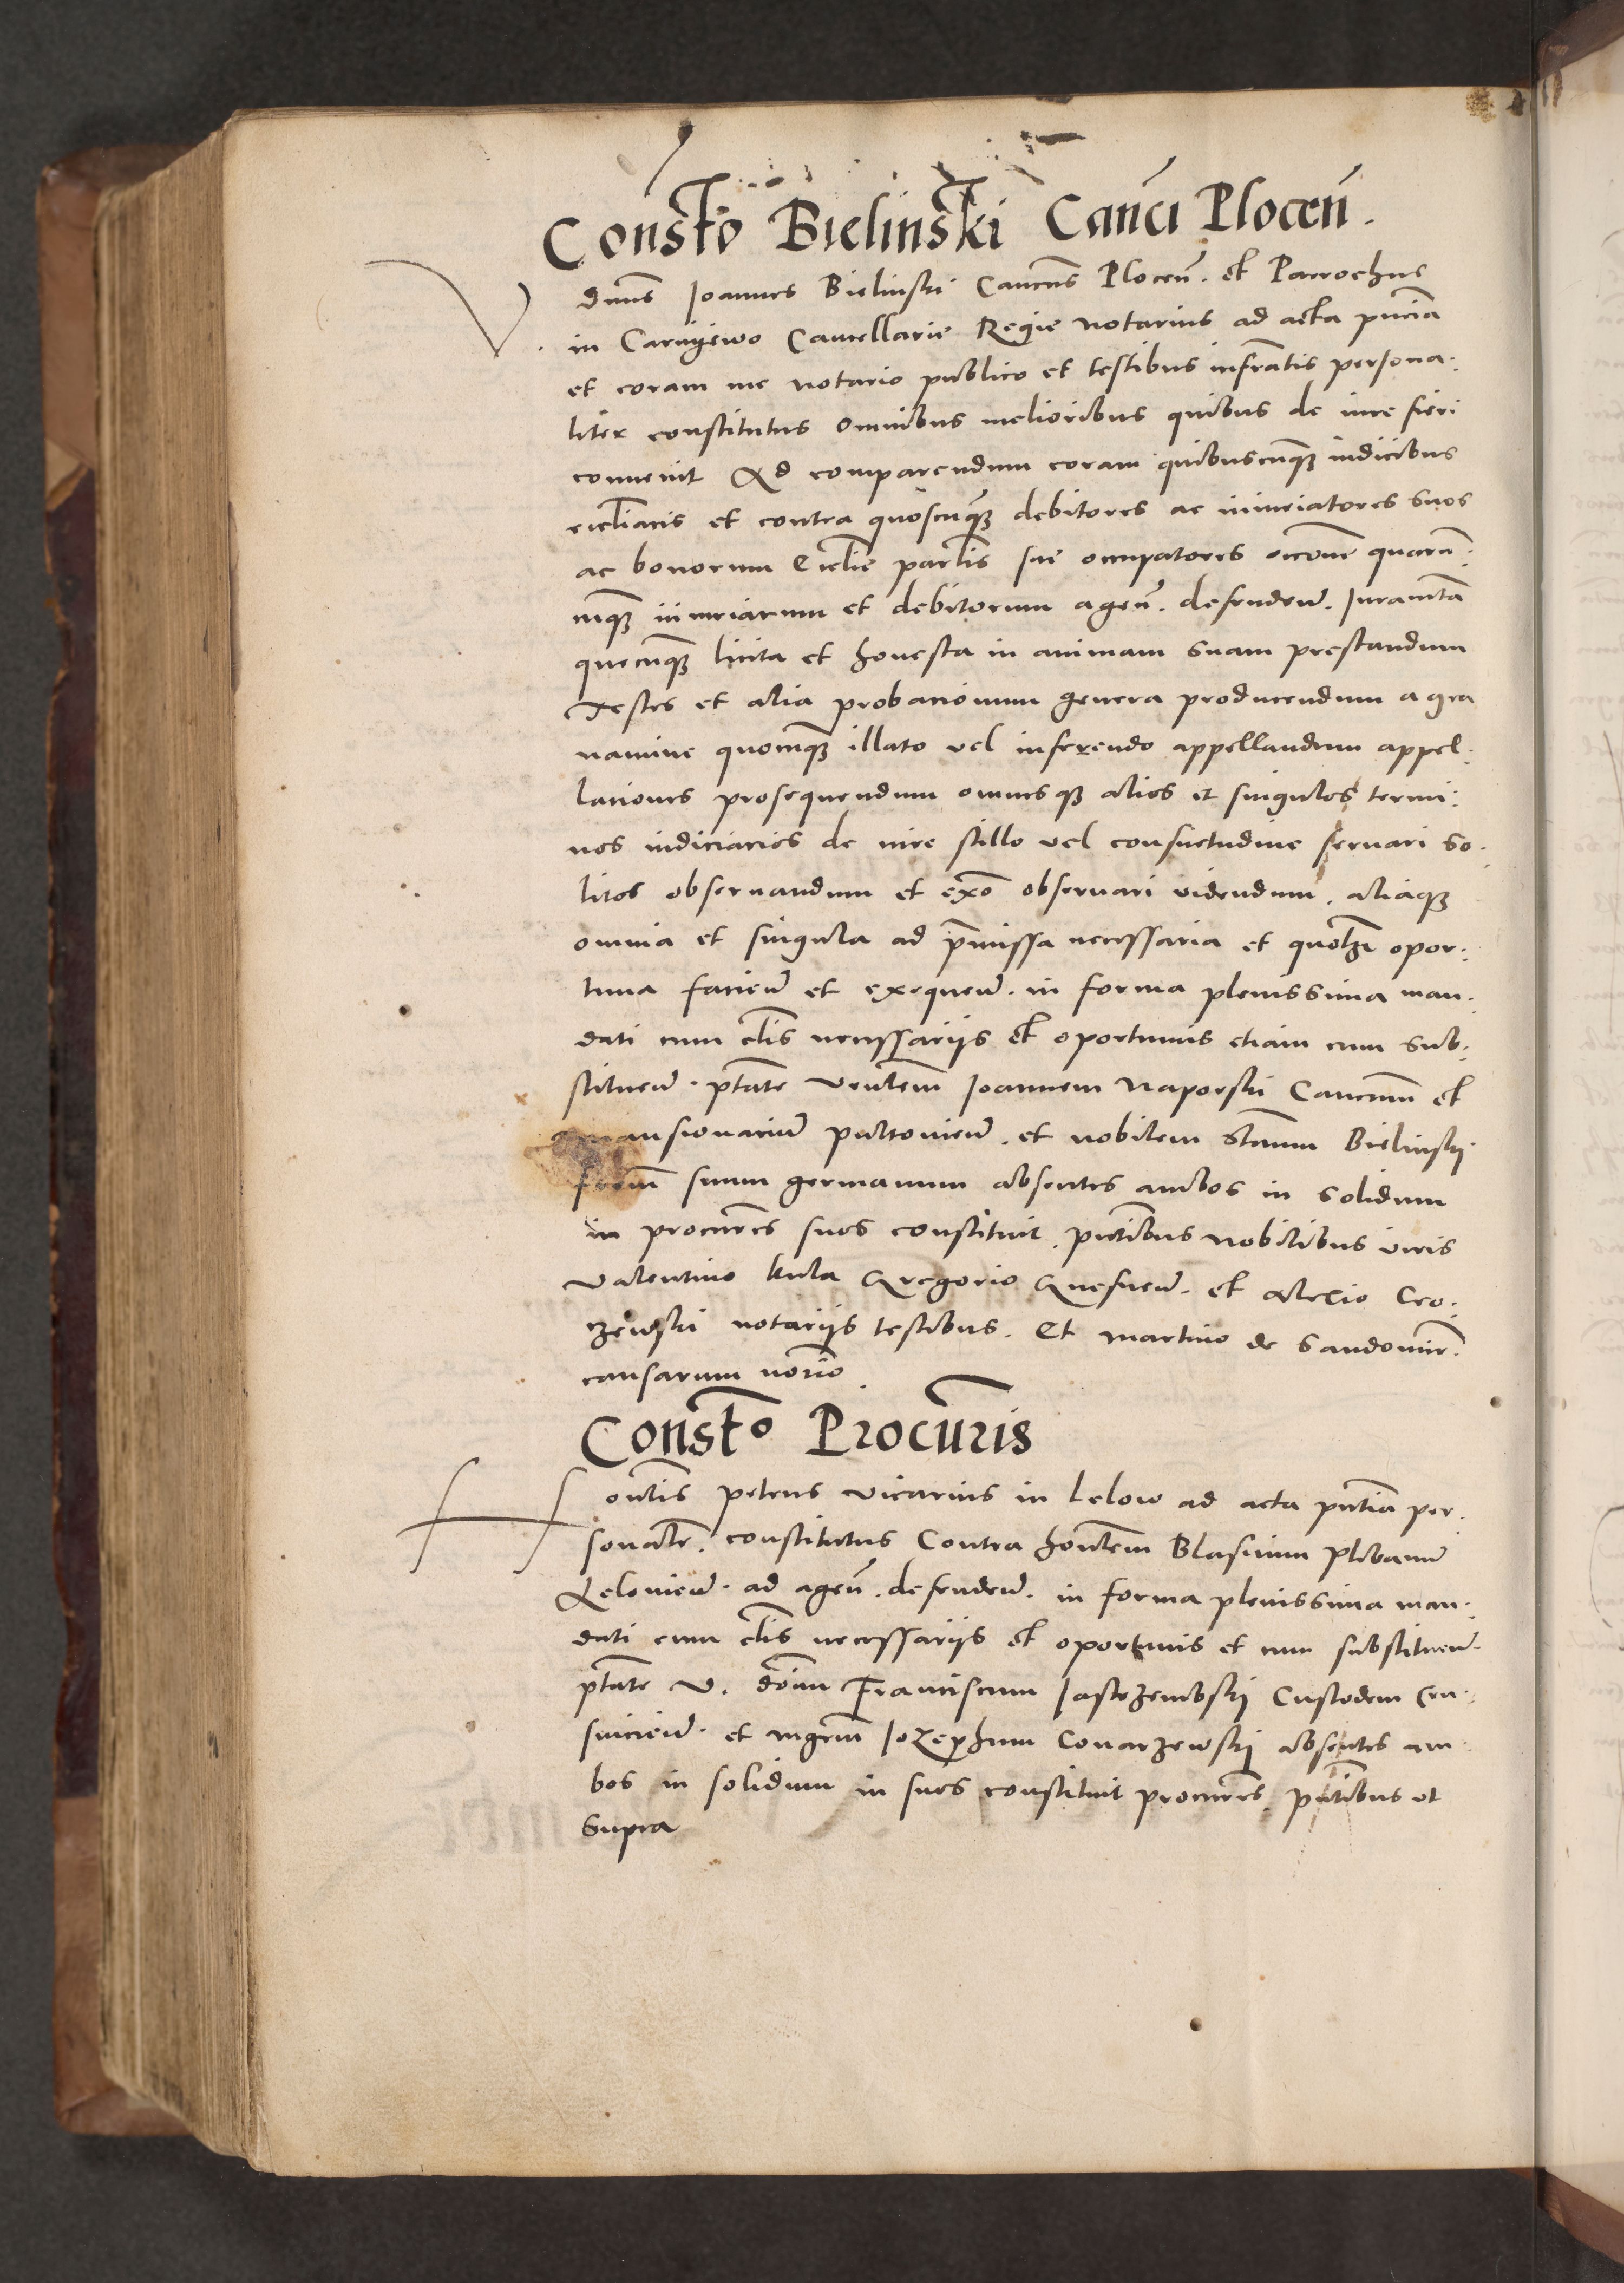 Const̄o Bielinski Canc̄i Plocen̄.
V. dnūs Joannes Bielinski Cancn̄s Plocen̄. et Parrochus
in Carnyewo Cancellarie Regie notarius ad acta pn̄cia
et coram me notario publico et testibus infrātis persona.
liter constitutus omnibus melioribus quibus de iure fieri
conuenit Ad comparendum coram quibuscunqꝫ iudicibus
ecclīacis et contra quoscunqꝫ debitores ac iniuriatores suos
ac bonorum Ecclīe parl̄is sue occupatores occōne quarū:
cnqꝫ iniuriarum et debitorum agen̄. defenden̄. Juramn̄ta
quecunqꝫ licita et honesta in animam suam prestandum
Testes et alia probacionum genera producendum a gra
uamine quocunqꝫ illato vel inferendo appellandum appel.
laciones prosequendum omnesqꝫ alios et singulos termi:
nos iudiciarios de iure stillo vel consuetudine seruari so.
litos obseruandum et ex̄o obseruari videndum, aliaqꝫ
omnia et singula ad p̄missa necessaria et quōlꝫ opor:
tuna facien̄ et exequen̄. in forma plenissima man.
dati cum cl̄is necessarijs et oportunis etiam cum sub:
stituen̄. ptāte Venlēm Joannem Naporski Cancnm̄ et
mansionariu̅ pultouien̄. et nobilem Stan̄m Bielinskij
frēm suum germanum absentes ambos in solidum
in procurēs suos constituit, pn̄tibus nobilibus viris
Valentino kula Gregorio Gnesnen̄. et Alexio Cro:
zewski notarijs testibus. Et martino de Sandomir̄.
causarum norīo.
Const̄o Procuris
Honl̄is petrus vicarius in Lelow ad acta pn̄tia per.
sonalr̄. constitutus Contra honlēm Blasium plebanu̅
Lelouien̄. ad agen̄. defenden̄. in forma plenissima man.
dati cum cl̄is necessarijs et oportunis et cum substituen̄
ptāte V. dōim Franciscum Jastrzembskij Custodem Cru.
suicien̄. et mgrm̄ Jozephum Conarzewskij absentes am
bos in solidum in suos constituit procurēs, pn̄tibus vt
supra